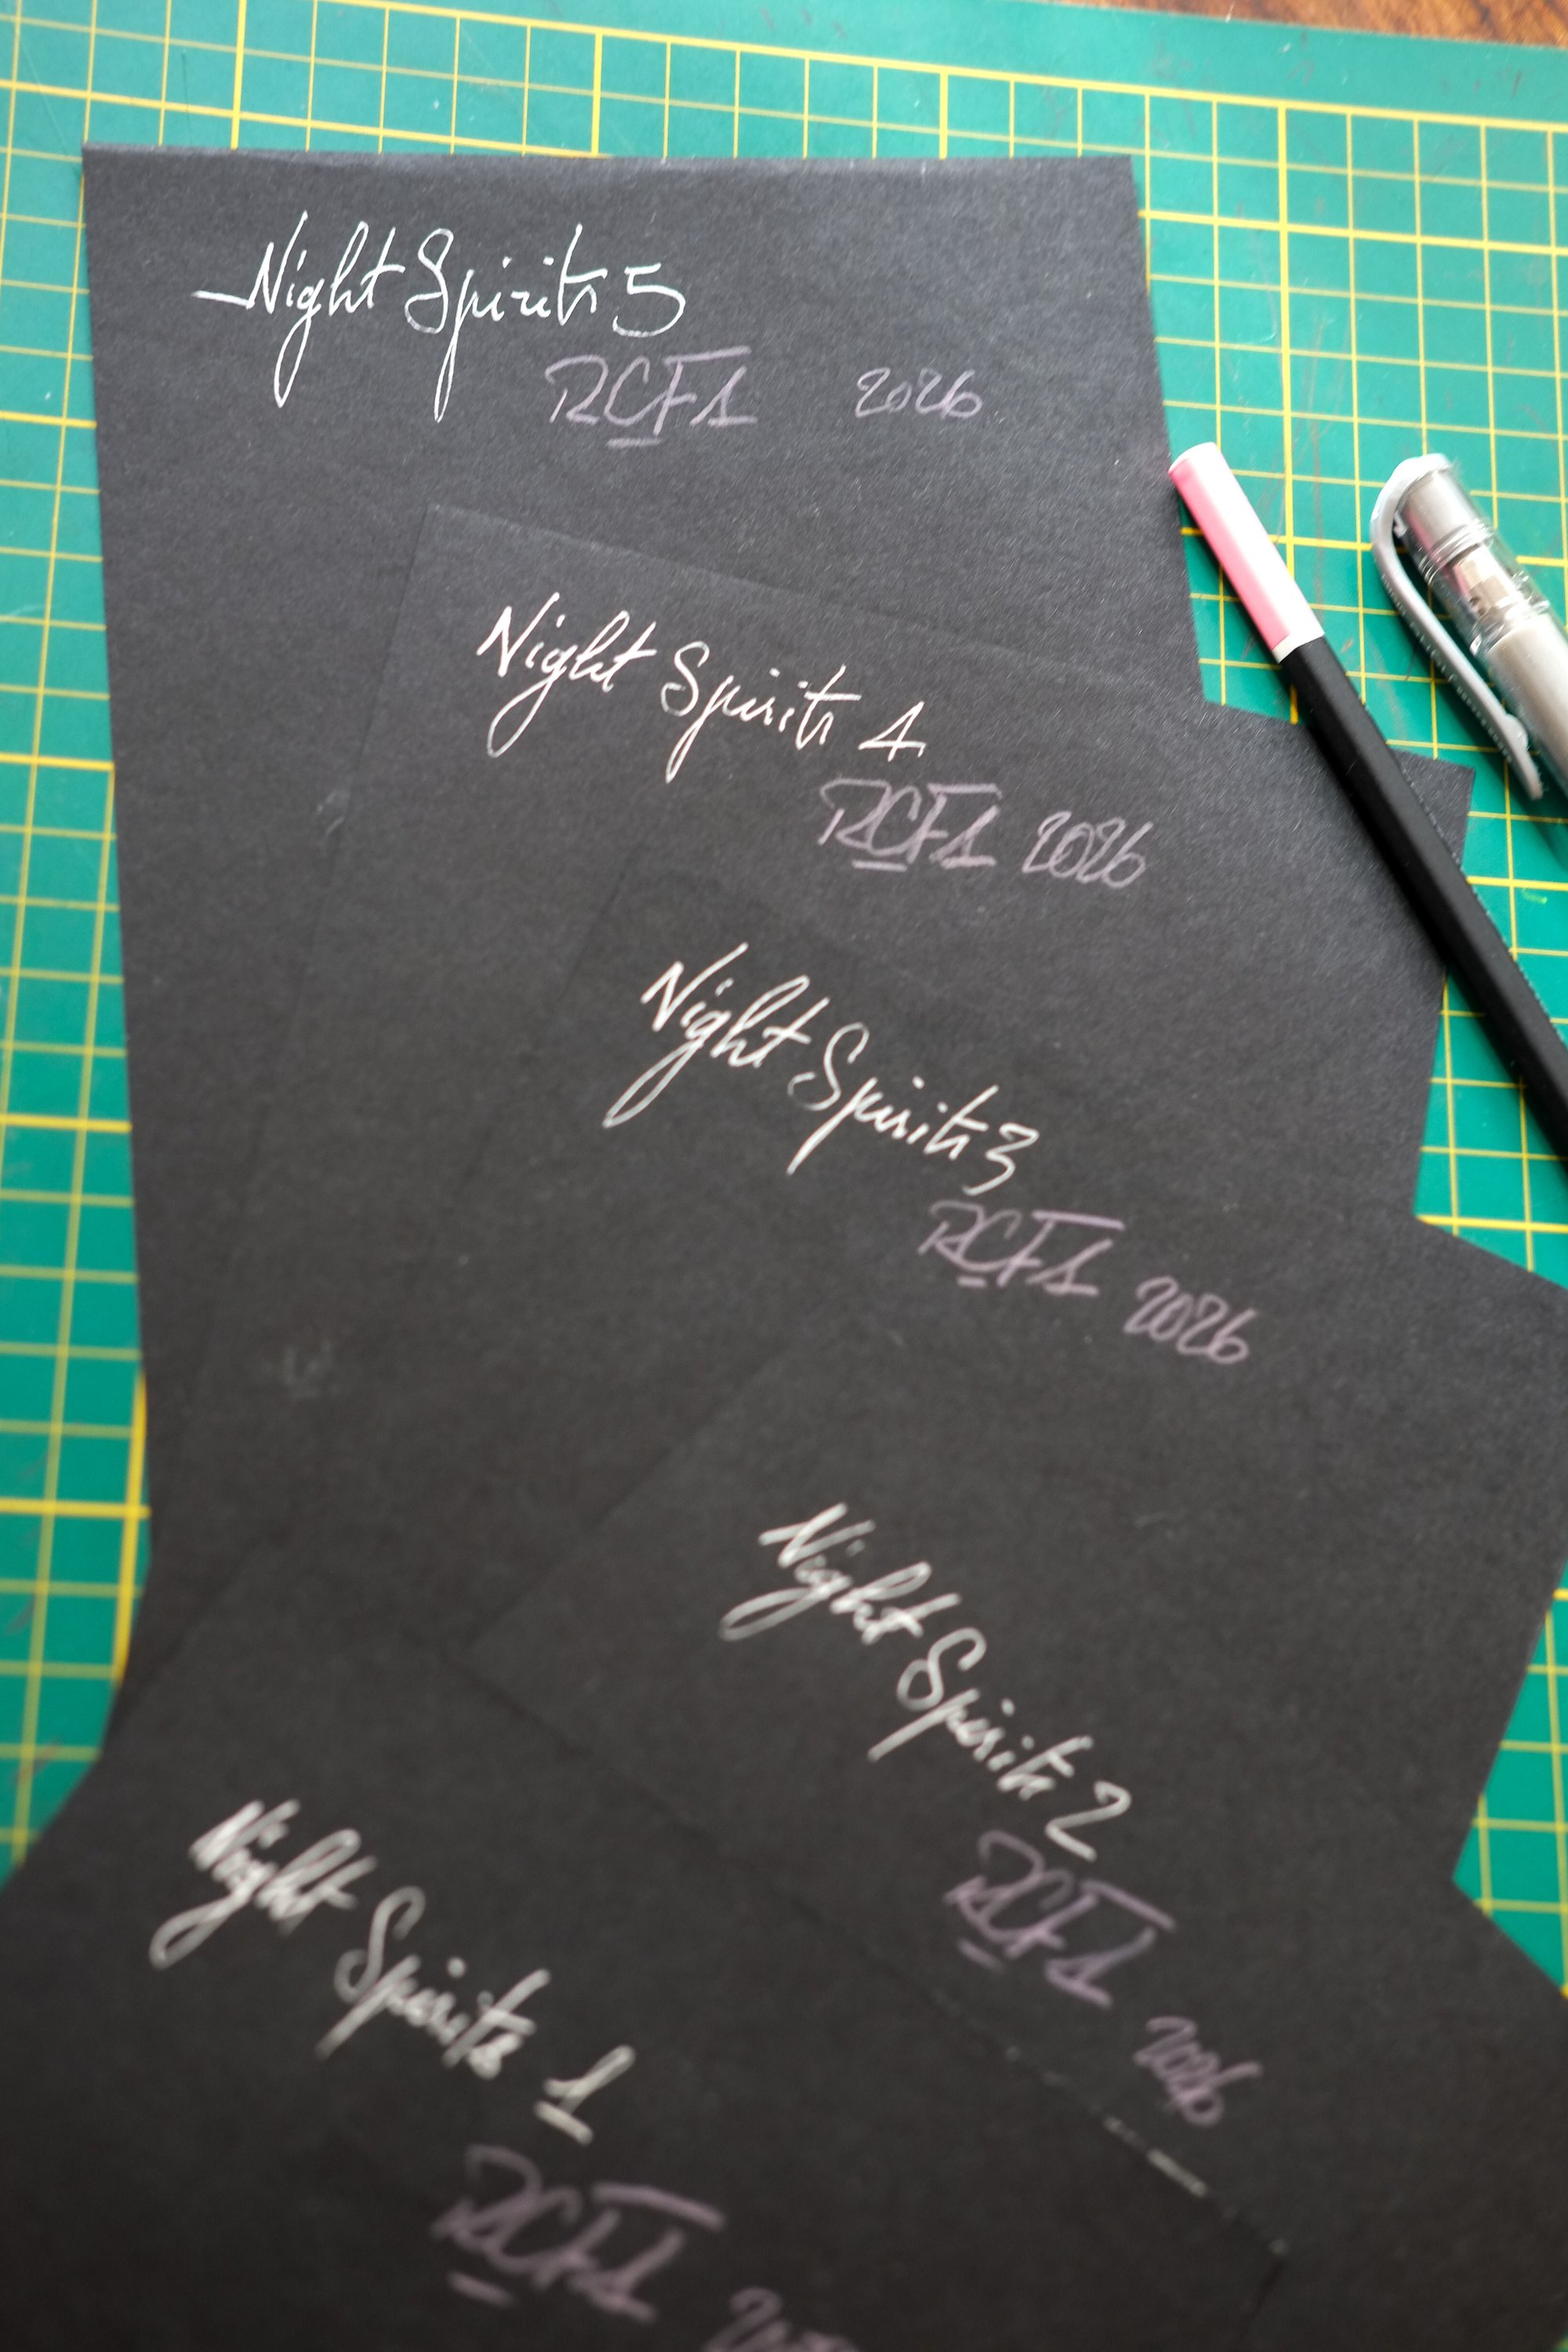 Night Spirits 5
RCFA 2026
Night Spirits 4
RCFA 2026
Night Spirits 3
RCFA 2026
Night Spirits 2
RCFA 2026
Night Spirits 1
RCFA